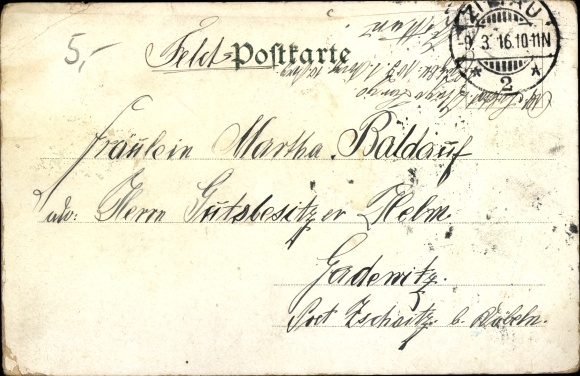 5,-
Feld-Postkarte
ZITTAU
-9.3.16.10-11N
* 2 *
Fräulein Martha Baldauf
adr: Herrn Gutsbesitzer Helm
Gadewitz.
Post Zschaitz b. Döbeln.